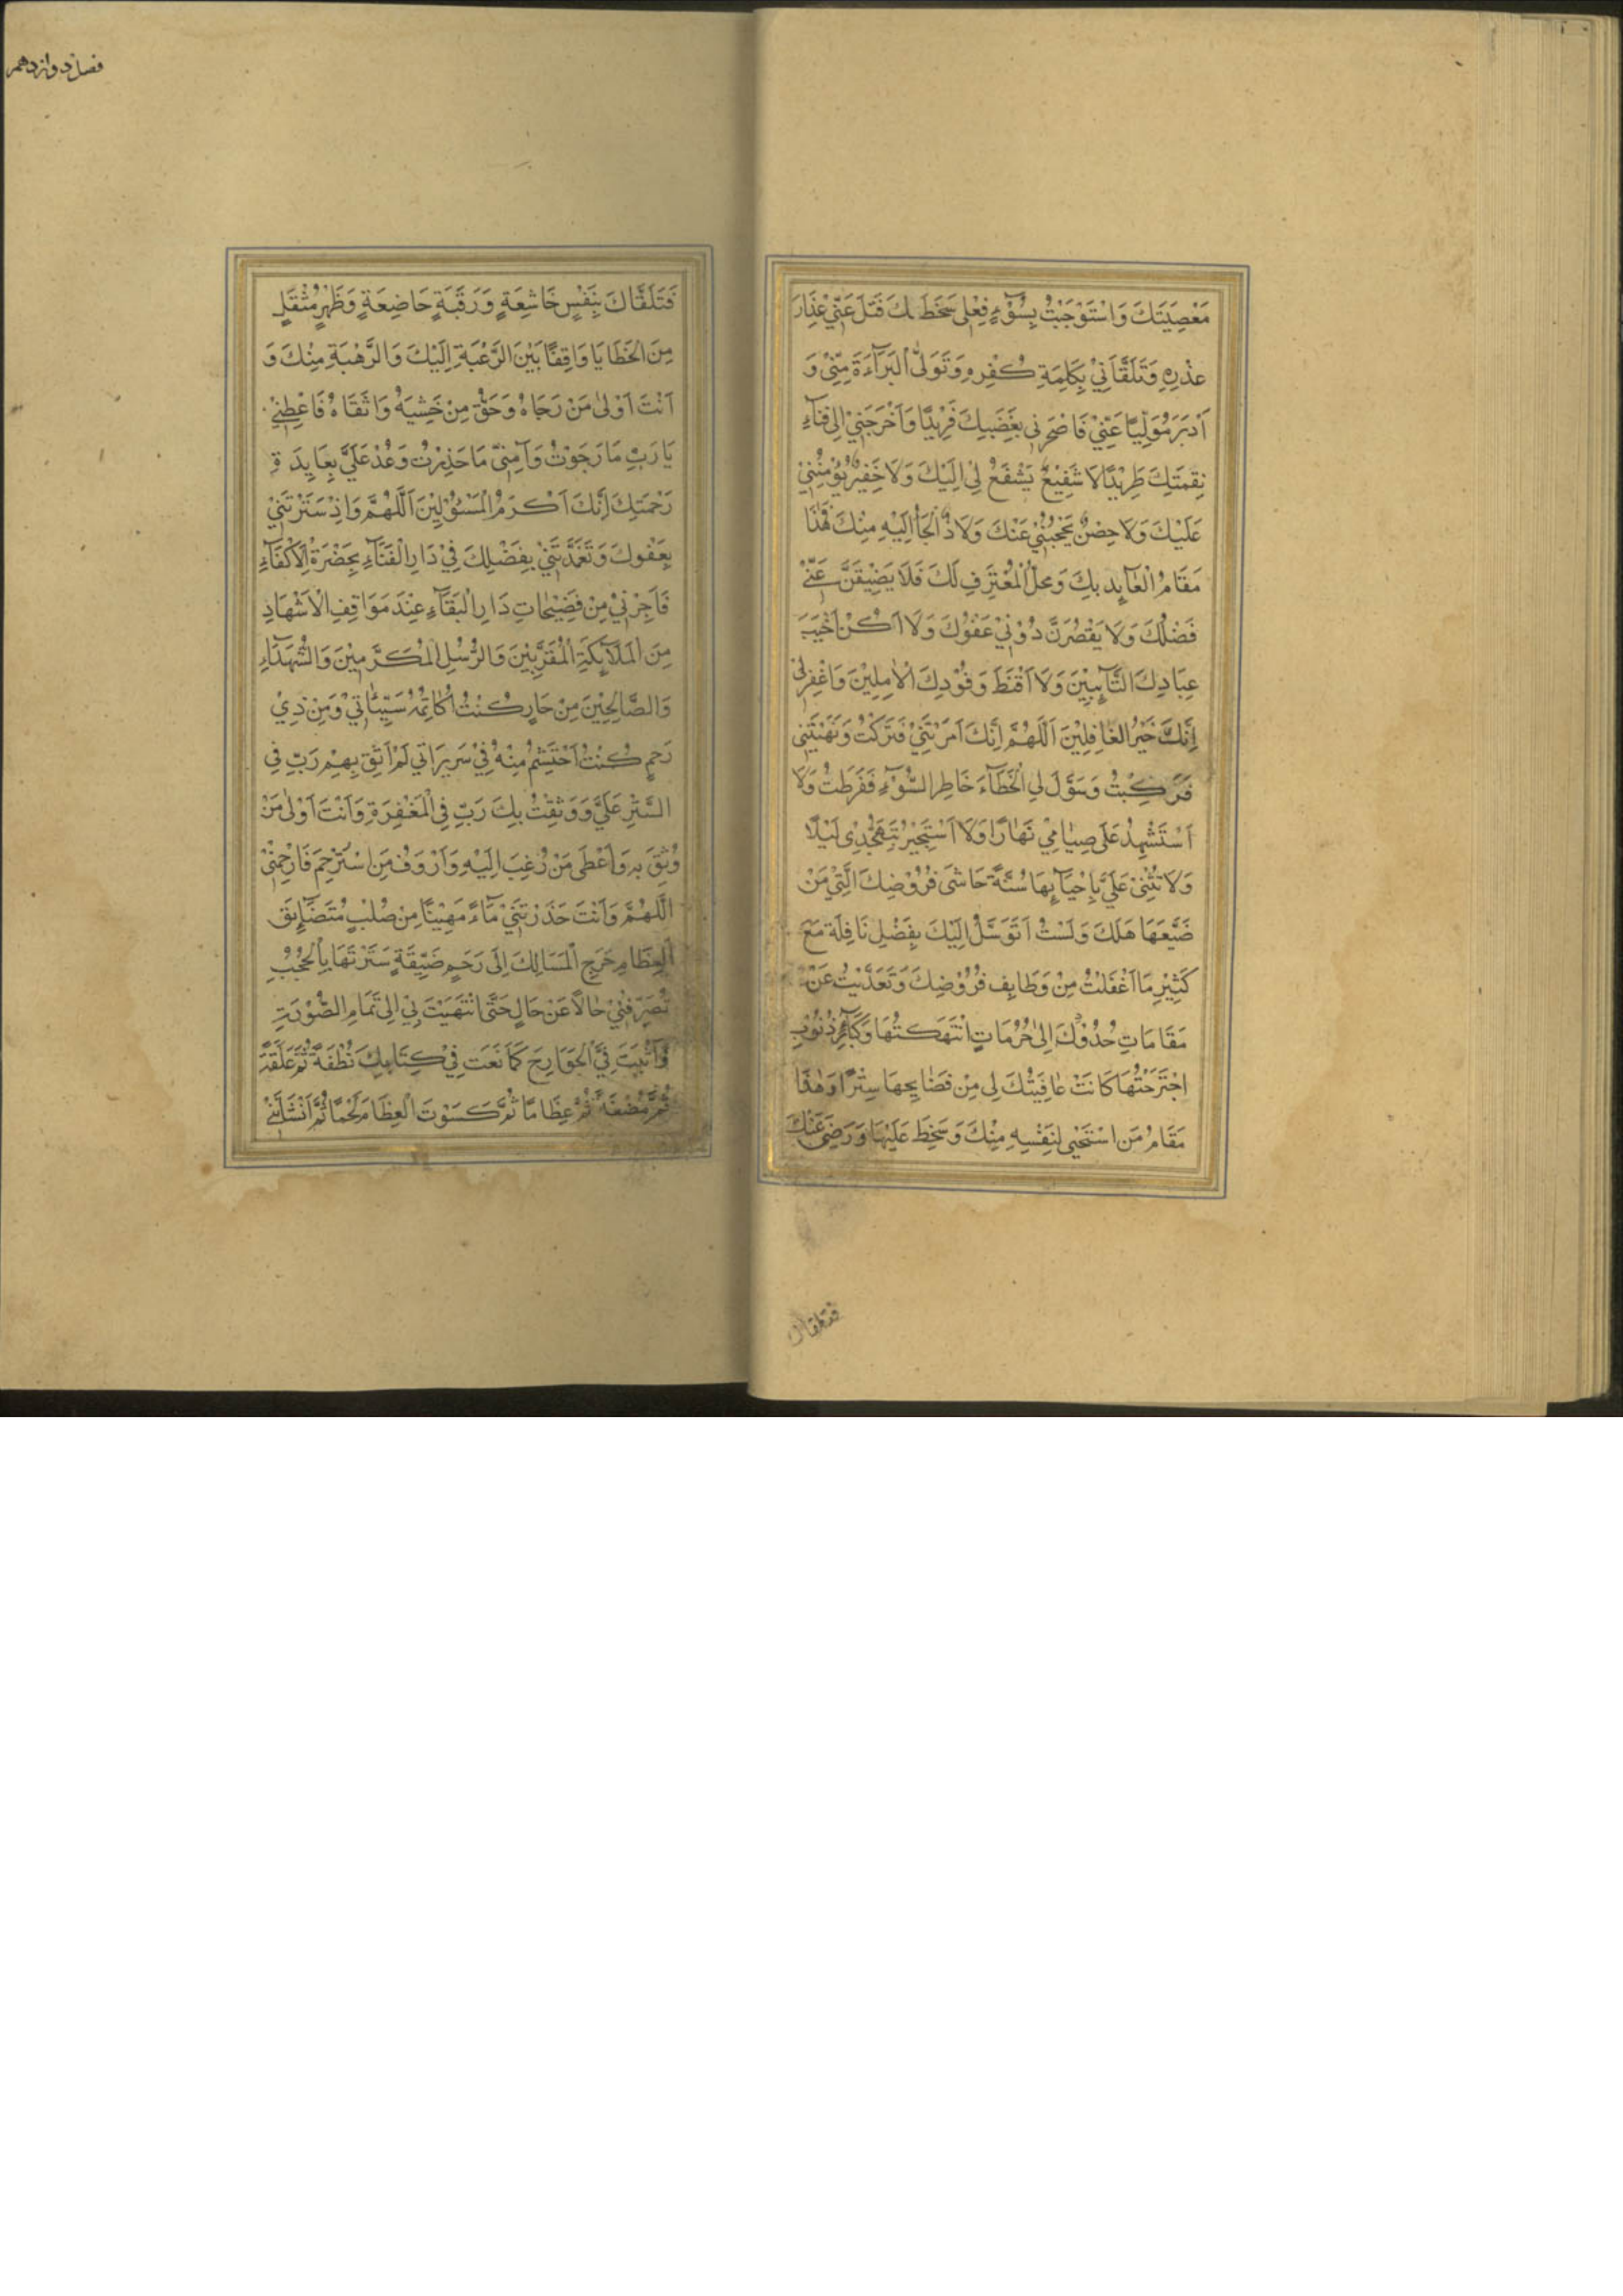 مَعْصِيَتَكَ وَاسْتَوْجَبْتُ بِسُوْءِ فِعْلِي سَخَطَكَ فَتَلَ عَنِّيْ عِذَارَ
عُذْرِهِ وَتَلَقَّانِيْ بِكَلِمَةِ كُفْرِهِ وَتَوَلَّى الْبَرَآءَةَ مِنِّيْ وَ
اَدْبَرَ مُوَلِّيًا عَنِّيْ فَاَصْحَرَنِي بِغَضَبِكَ فَرِيْدًا وَاَخْرَجَنِيْ اِلٰى فَنَآءِ
نِقْمَتِكَ طَرِيْدًا لَا شَفِيْعٌ يَشْفَعُ لِيْ اِلَيْكَ وَلَا خَفِيْرٌ يُؤْمِنُنِيْ
عَلَيْكَ وَلَا حِصْنٌ يَحْجُبُنِيْ عَنْكَ وَلَا ذٌ اَلْجَأُ اِلَيْهِ مِنْكَ فَهٰذَا
مَقَامُ الْعَآيِدِ بِكَ وَمَحَلُّ الْمُعْتَرِفِ لَكَ فَلَا يَضِيْقَنَّ عَنِّيْ
فَضْلُكَ وَلَا يَقْصُرَنَّ دُوْنِيْ عَفْوُكَ وَلَا اَكُنْ اَخْيَبَ
عِبَادِكَ التَّآيِبِيْنَ وَلَا اَقْنَطَ وَفُوْدِكَ الْاٰمِلِيْنَ وَاغْفِرْلِيْ
اِنَّكَ خَيْرُ الْغَافِلِيْنَ اَللّٰهُمَّ اِنَّكَ اَمَرْتَنِيْ فَتَرَكْتُ وَنَهَيْتَنِيْ
فَرَكِبْتُ وَسَوَّلَ لِي الْخَطَآءَ خَاطِرُ السُّوْءِ فَفَرَطْتُ وَلَا
اَسْتَشْهِدُ عَلَى صِيَامِيْ نَهَارًا وَلَا اَسْتَجِيْرُ بِتَهَجُّدِيْ لَيْلًا
وَلَا تُثْنِيْ عَلَيَّ بِاِحْيَآيِهَا سُنَّةٌ حَاشَى فُرُوْضِكَ الَّتِيْ مَنْ
ضَيَّعَهَا هَلَكَ وَلَسْتُ اَتَوَسَّلُ اِلَيْكَ بِفَضْلِ نَافِلَةٍ مَعَ
كَثِيْرِ مَا اَغْفَلْتُ مِنْ وَظَايِفِ فُرُوْضِكَ وَتَعَدَّيْتُ عَنْ
مَقَامَاتِ حُدُوْدِكَ اِلٰى حُرُمَاتٍ اِنْتَهَكْتُهَا وَكَبَآيِرِ ذُنُوْبٍ
اجْتَرَحْتُهَا كَانَتْ عَافِيَتُكَ لِي مِنْ فَضَايِحِهَا سِتْرًا وَهٰذَا
مَقَامُ مَنِ اسْتَحْيٰى لِنَفْسِهِ مِنْكَ وَسَخِطَ عَلَيْهَا وَرَضِيَ عَنْكَ
فتلقاك
فصل دوازدهم
فَتَلَقَّاكَ بِنَفْسٍ خَاشِعَةٍ وَرَقَبَةٍ خَاضِعَةٍ وَظَهْرٍ مُثْقَلٍ
مِنَ الْخَطَايَا وَاقِفًا بَيْنَ الرَّغْبَةِ اِلَيْكَ وَالرَّهْبَةِ مِنْكَ وَ
اَنْتَ اَوْلٰى مَنْ رَجَاهُ وَحَقُّ مِنْ خَشِيَهُ وَاتَّقَاهُ فَاعْطِنِيْ
يَا رَبِّ مَا رَجَوْتُ وَآمِنِّيْ مَا حَذِرْتُ وَعُدْ عَلَيَّ بِعَايِدَةِ
رَحْمَتِكَ اِنَّكَ اَكْرَمُ الْمَسْئُوْلِيْنَ اَللّٰهُمَّ وَاِذْ سَتَرْتَنِيْ
بِعَفْوِكَ وَتَغَمَّدْتَنِيْ بِفَضْلِكَ فِيْ دَارِ الْفَنَآءِ بِحَضْرَةِ الْاَكْفَآءِ
فَاَجِرْنِيْ مِنْ فَضِيْحَاتِ دَارِ الْبَقَآءِ عِنْدَ مَوَاقِفِ الْاَشْهَادِ
مِنَ الْمَلَآيِكَةِ الْمُقَرَّبِيْنَ وَالرُّسُلِ الْمُكَرَّمِيْنَ وَالشُّهَدَآءِ
وَالصَّالِحِيْنَ مِنْ جَارٍ كُنْتُ اُكَاتِمُهُ سَيِّئَاتِيْ وَمِنْ ذِيْ
رَحِمٍ كُنْتُ اَحْتَشِمُ مِنْهُ فِيْ سَرِيرَاتِي لَمْ اَثِقْ بِهِمْ رَبِّ فِي
السَّتْرِ عَلَيَّ وَوَثِقْتُ بِكَ رَبِّ فِي الْمَغْفِرَةِ وَاَنْتَ اَوْلٰى مَنْ
وُثِقَ بِهِ وَاَعْطَى مَنْ رُغِبَ اِلَيْهِ وَاَرْوَفُ مَنِ اسْتُرْحِمَ فَارْحَمْنِيْ
اَللّٰهُمَّ وَاَنْتَ حَدَرْتَنِيْ مَآءً مَهِيْنًا مِنْ صُلْبٍ مُتَضَآيِقِ
الْعِظَامِ حَرِجِ الْمَسَالِكِ اِلَى رَحِمٍ ضَيِّقَةٍ سَتَرْتَهَا بِالْحُجُبِ
تُصَرِّفُنِيْ حَالًا عَنْ حَالٍ حَتَّى انْتَهَيْتَ بِيْ اِلٰى تَمَامِ الصُّوْرَةِ
وَاَثْبَتَّ فِيَّ الْجَوَارِحَ كَمَا نَعَتَّ فِيْ كِتَابِكَ نُطْفَةً ثُمَّ عَلَقَةً
ثُمَّ مُضْغَةً ثُمَّ عِظَامًا ثُمَّ كَسَوْتَ الْعِظَامَ لَحْمًا ثُمَّ اَنْشَاْتَنِيْ